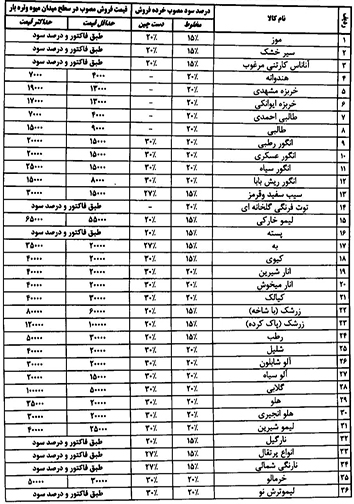 ردیف نام کالا درصد سود مصوب خرده فروش قیمت فروش مصوب در سطح میدان میوه وتره بار
مخلوط دست چین حداقل قیمت حداکثر قیمت
۱ موز ۱۵٪ ۲۰٪ طبق فاکتور و درصد سود
۲ سیر خشک ۱۵٪ ۲۰٪
۳ آناناس کارتنی مرغوب ۱۵٪ ۲۰٪ طبق فاکتور و درصد سود
۴ هندوانه ۲۰٪ - ۴۰۰۰ ۷۰۰۰
۵ خربزه مشهدی ۲۰٪ - ۱۳۰۰۰ ۱۹۰۰۰
۶ خربزه ایوانکی ۲۰٪ - ۱۳۰۰۰ ۱۷۰۰۰
۷ طالبی احمدی ۲۰٪ - ۴۰۰۰ ۷۰۰۰
۸ طالبی ۲۰٪ - ۹۰۰۰ ۱۵۰۰۰
۹ انگور رطبی ۲۰٪ ۳۰٪ ۱۵۰۰۰ ۲۰۰۰۰
۱۰ انگور عسکری ۲۰٪ ۳۰٪ ۱۵۰۰۰ ۲۰۰۰۰
۱۱ انگور سیاه ۲۰٪ ۳۰٪ ۱۵۰۰۰ ۲۵۰۰۰
۱۲ انگور ریش بابا ۲۰٪ ۳۰٪ ۸۰۰۰ ۱۵۰۰۰
۱۳ سیب سفید وقرمز ۱۵٪ ۲۷٪ ۱۵۰۰۰ ۳۰۰۰۰
۱۴ توت فرنگی گلخانه ای ۲۰٪ - طبق فاکتور و درصد سود
۱۵ لیمو خارکی ۱۵٪ ۲۰٪ ۵۵۰۰۰ ۶۵۰۰۰
۱۶ پسته ۱۵٪ ۲۰٪ طبق فاکتور و درصد سود
۱۷ به ۱۵٪ ۲۷٪ ۲۰۰۰۰ ۳۵۰۰۰
۱۸ کیوی ۲۰٪ ۳۰٪ ۲۰۰۰۰ ۴۰۰۰۰
۱۹ انار شیرین ۲۰٪ ۳۰٪ ۲۰۰۰۰ ۴۰۰۰۰
۲۰ انار میخوش ۲۰٪ ۳۰٪ ۲۰۰۰۰ ۴۰۰۰۰
۲۱ کیالک ۲۰٪ ۳۰٪ ۳۰۰۰۰ ۴۰۰۰۰
۲۲ زرشک (با شاخه) ۱۵٪ ۲۰٪ ۶۰۰۰۰ ۸۰۰۰۰
۲۳ زرشک (پاک کرده) ۱۵٪ ۲۰٪ ۱۰۰۰۰۰ ۱۲۰۰۰۰
۲۴ رطب ۱۵٪ ۲۰٪ ۳۰۰۰۰ ۵۰۰۰۰
۲۵ شلیل ۲۰٪ ۳۰٪ ۲۰۰۰۰ ۴۰۰۰۰
۲۶ آلو شابلون ۲۰٪ ۳۰٪ ۲۰۰۰۰ ۳۰۰۰۰
۲۷ آلو سیاه ۲۰٪ ۳۰٪ ۱۵۰۰۰ ۲۰۰۰۰
۲۸ گلابی ۲۰٪ ۳۰٪ ۵۰۰۰۰ ۱۰۰۰۰۰
۲۹ هلو ۲۰٪ ۳۰٪ ۲۰۰۰۰ ۳۵۰۰۰
۳۰ هلو انجیری ۲۰٪ ۳۰٪ ۲۰۰۰۰ ۳۰۰۰۰
۳۱ لیمو شیرین ۲۰٪ ۳۰٪ ۲۵۰۰۰ ۴۰۰۰۰
۳۲ نارگیل ۱۵٪ ۲۰٪ طبق فاکتور و درصد سود
۳۳ انواع پرتقال ۱۵٪ ۲۷٪ طبق فاکتور و درصد سود
۳۴ نارنگی شمالی ۱۵٪ ۲۷٪ طبق فاکتور و درصد سود
۳۵ خرمالو ۲۰٪ ۳۰٪ ۳۰۰۰۰ ۵۰۰۰۰
۳۶ لیموترش نو ۲۰٪ ۳۰٪ طبق فاکتور و درصد سود